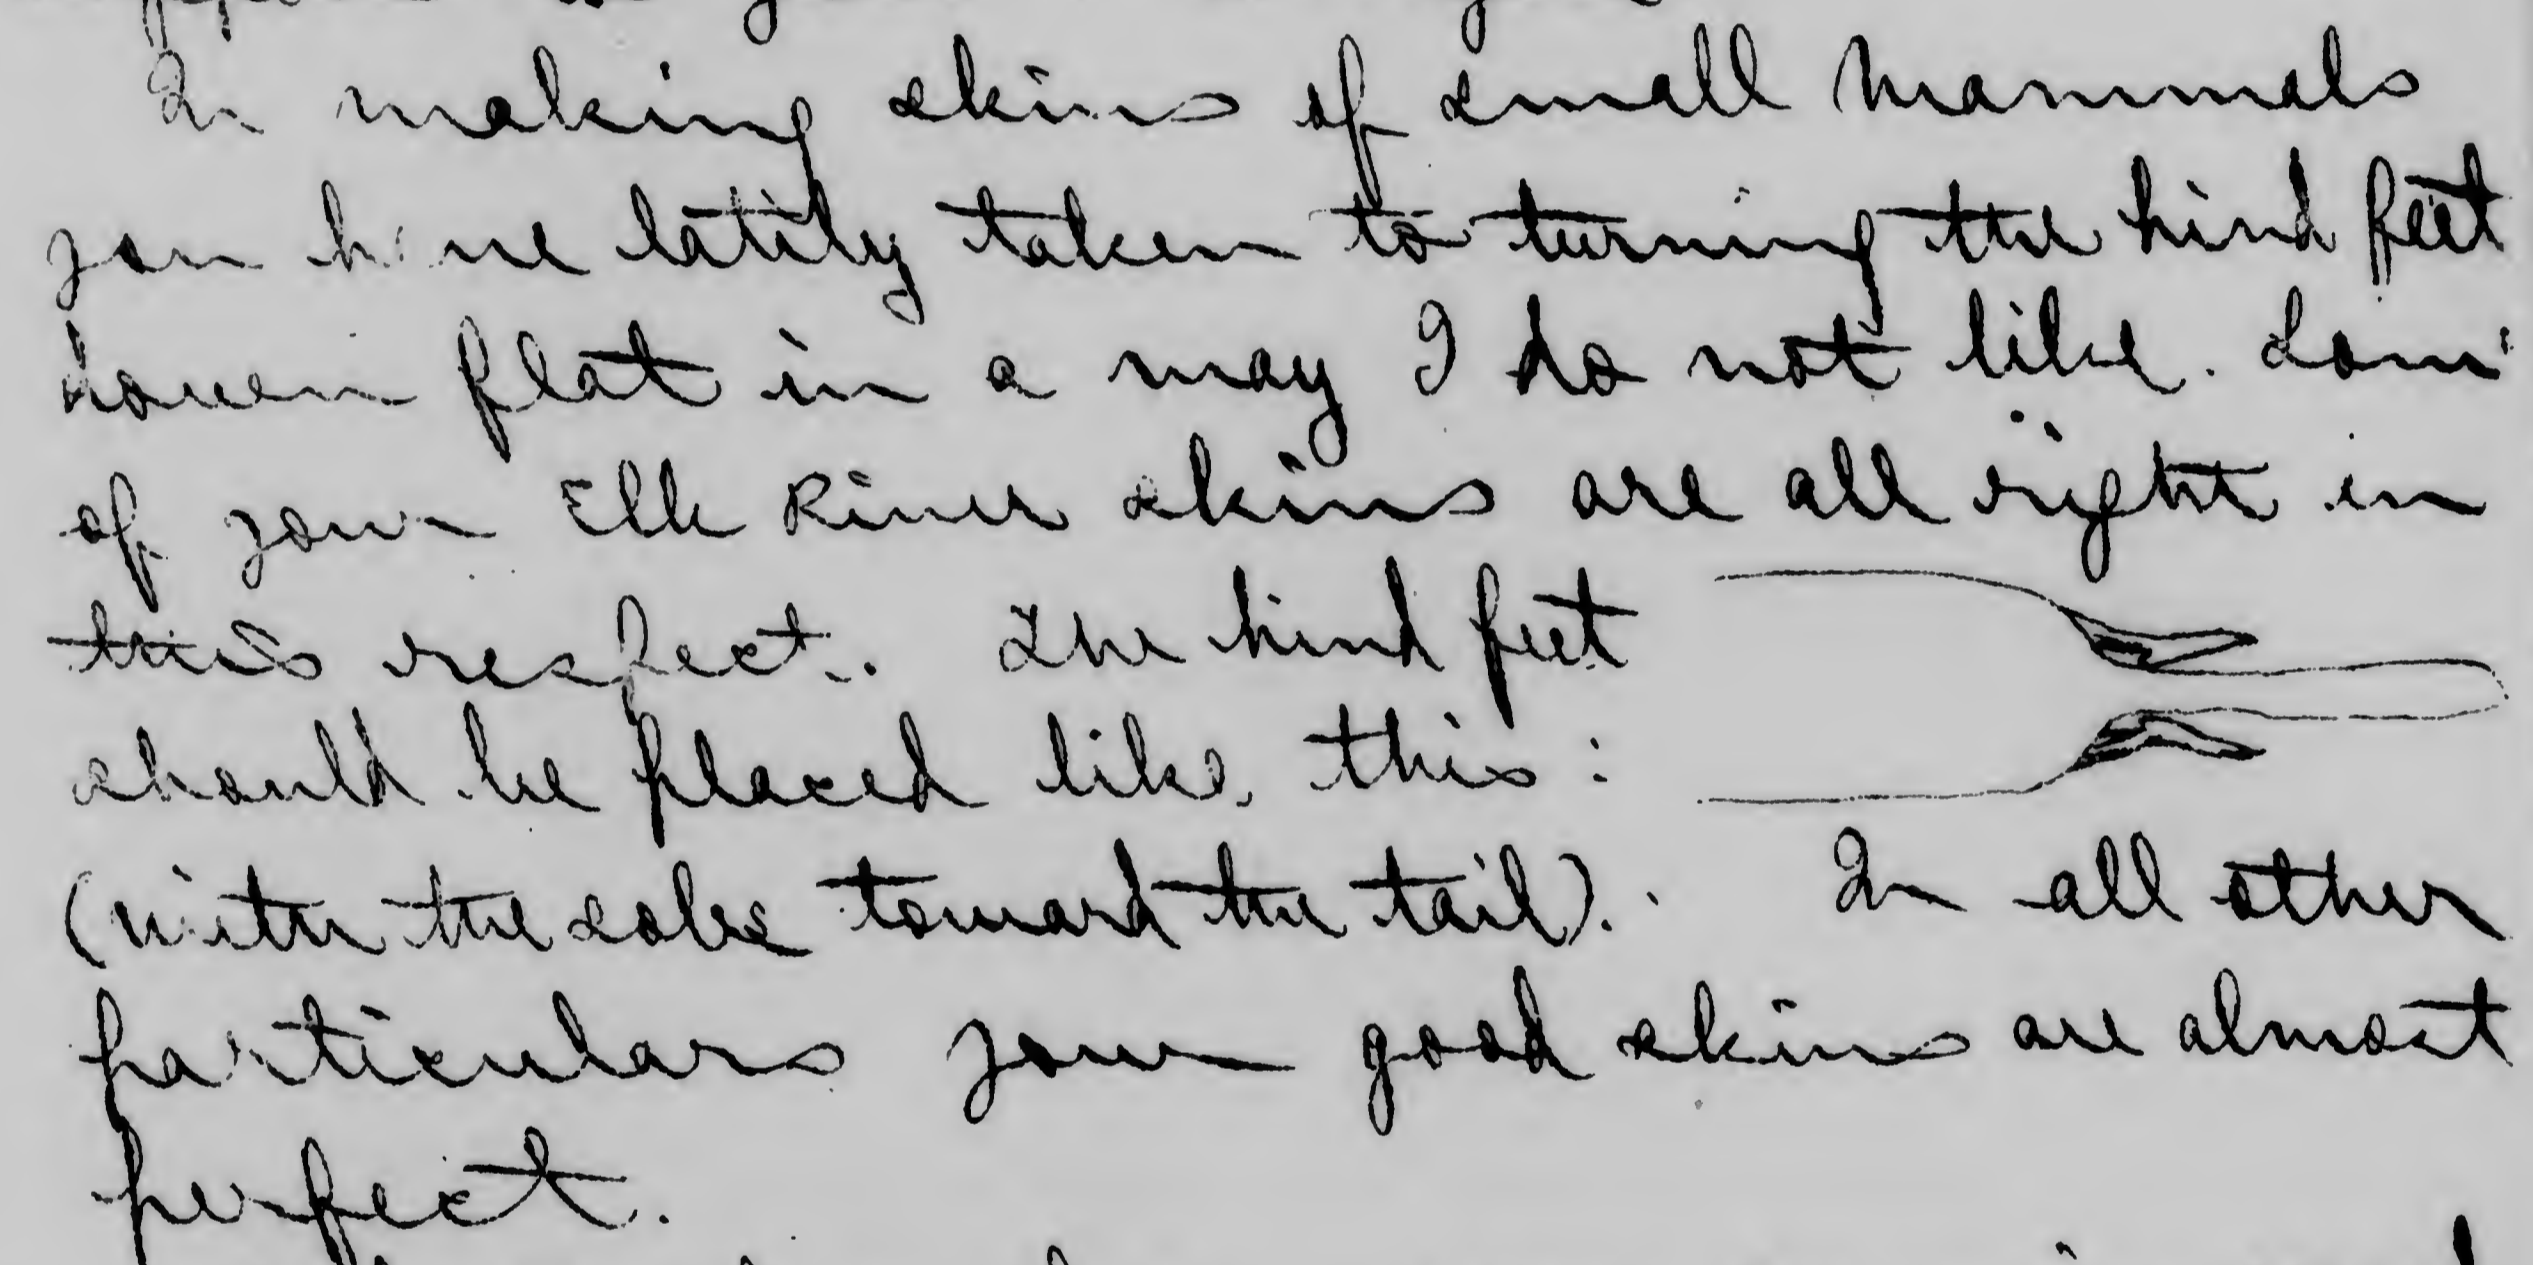 In making skins of small mammals
you have lately taken to turning the hind feet
down flat in a way I do not like. Some
of your Elk River skins are all right in
this respect. The hind feet
should be placed like this:
(with the soles toward the tail). In all other
particulars your good skins are almost
perfect.